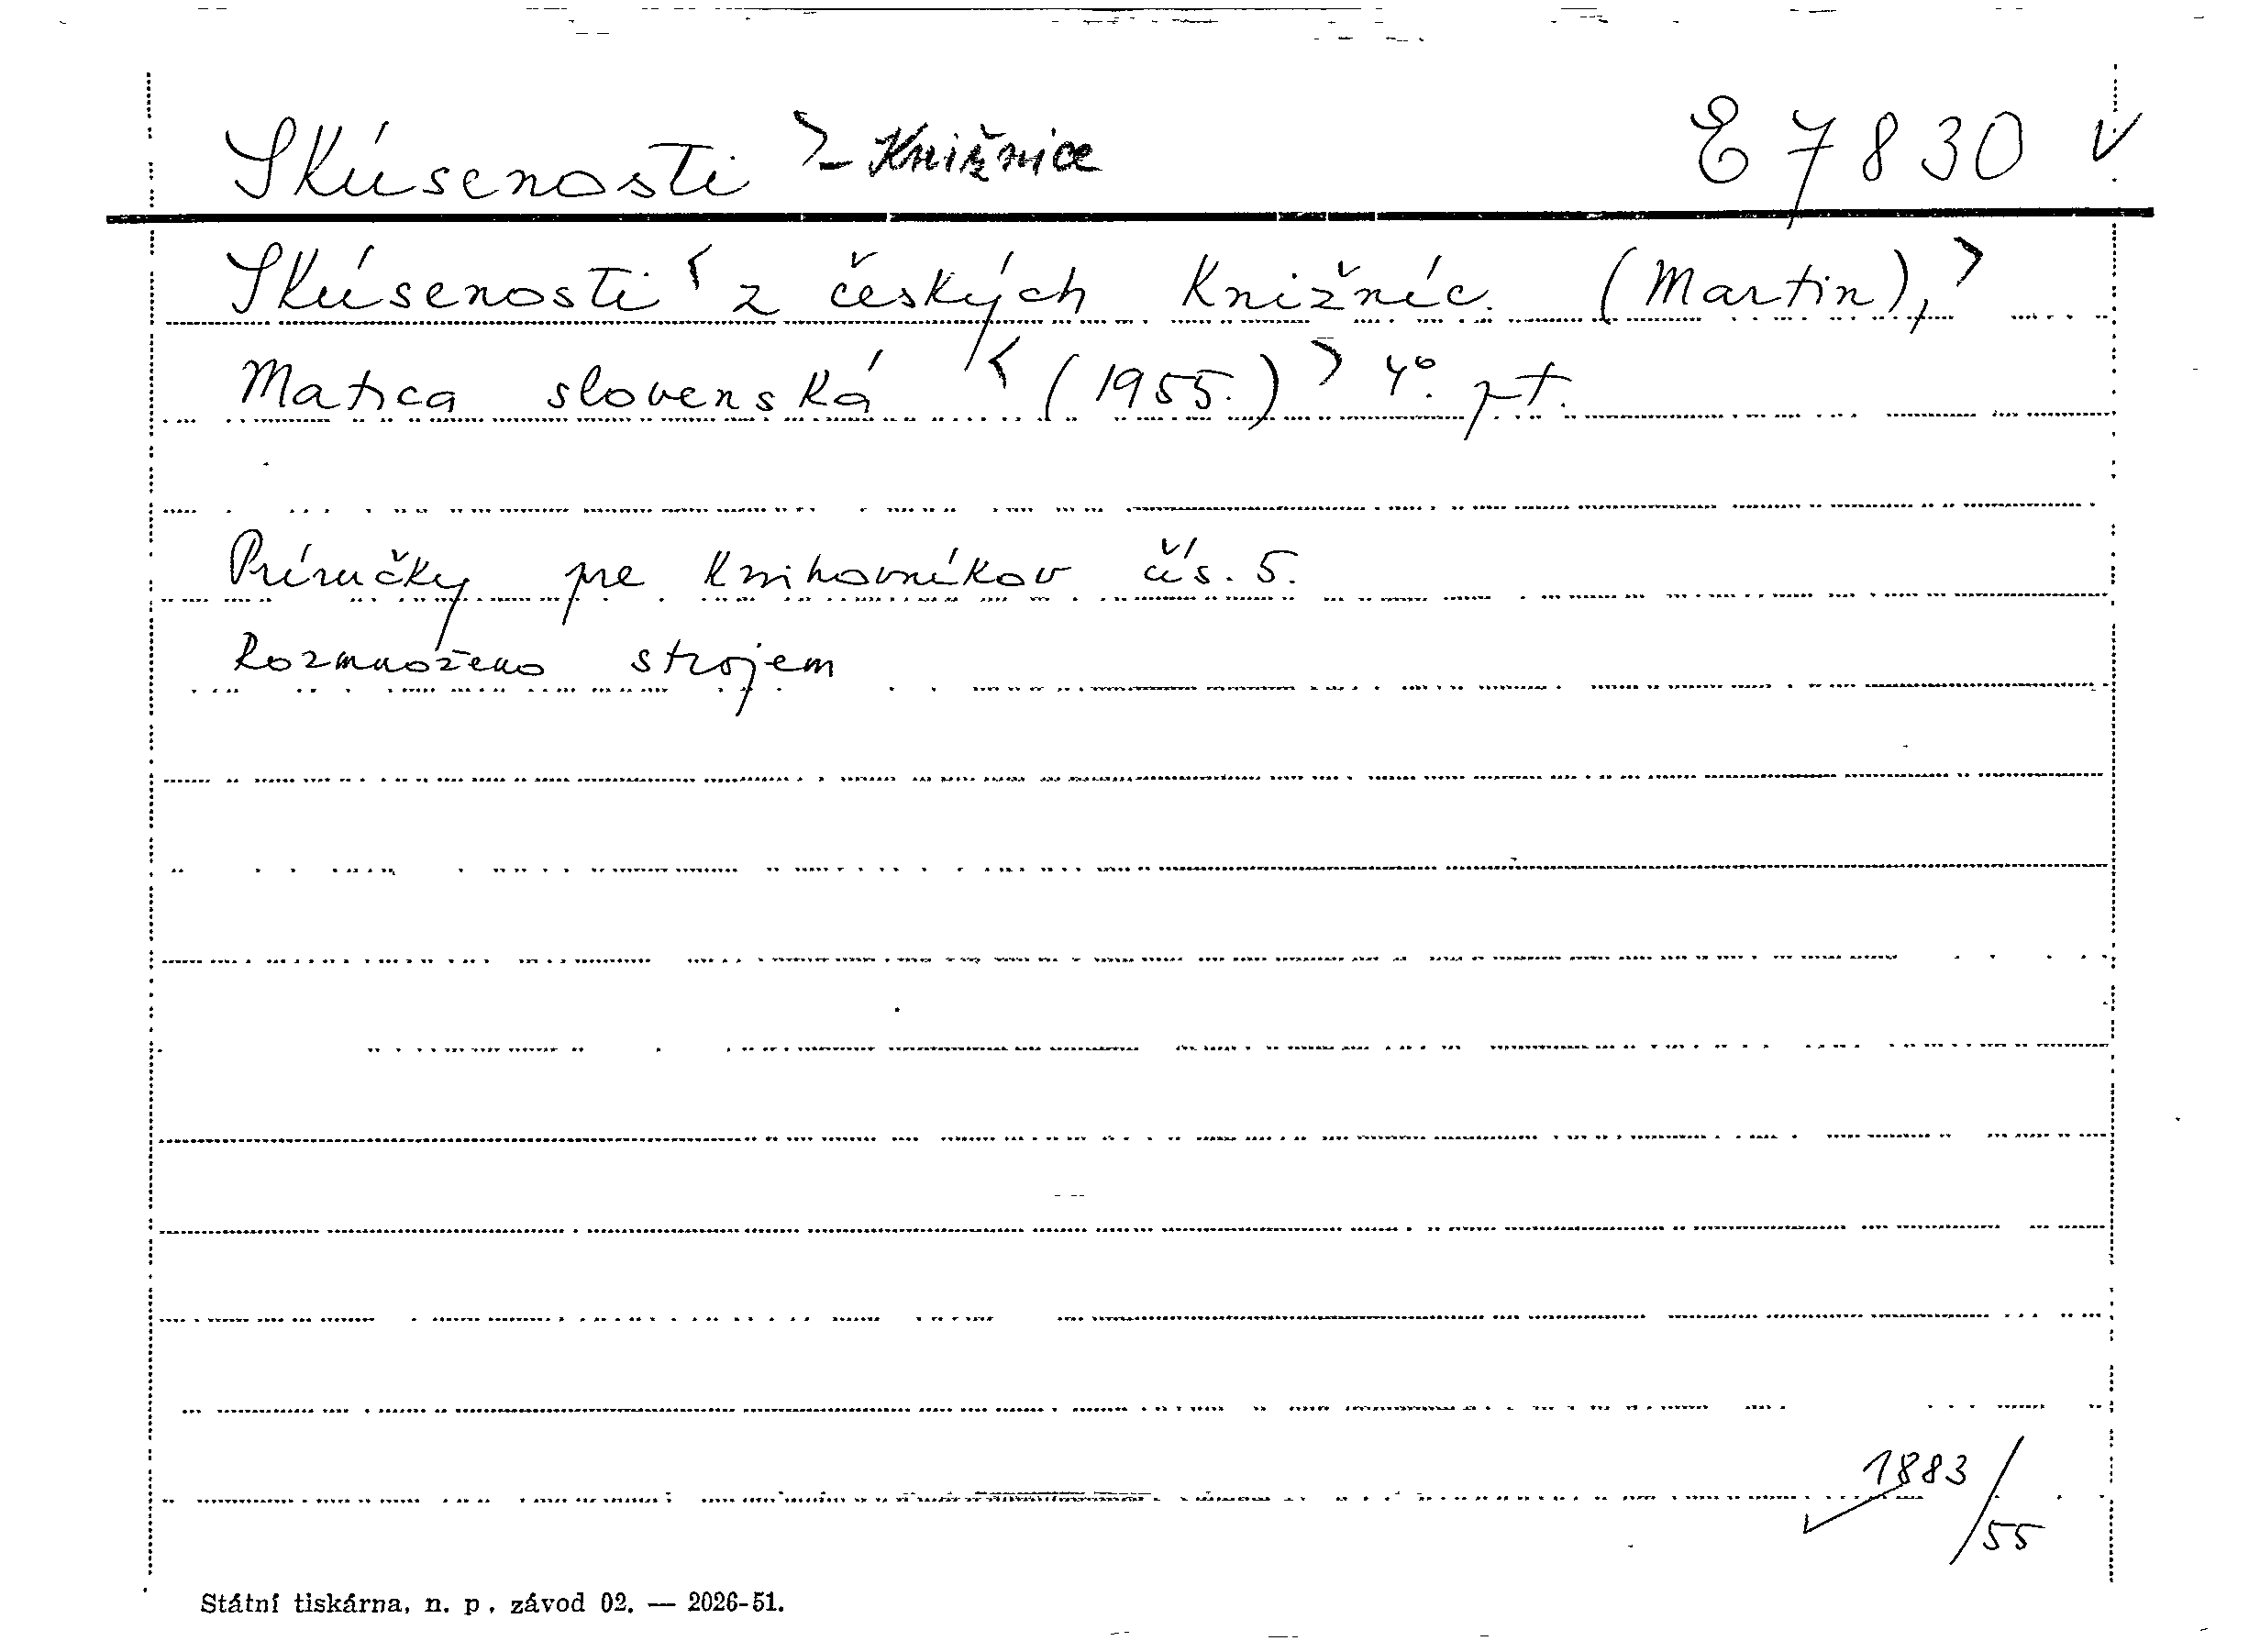 Skúsenosti > - Knižnice E 7830 v
Skúsenosti < z českých knižníc. (Martin), >
Matica slovenská < (1955.) > 4°. pt.
Príručky pre knihovníkov čís. 5.
Rozmnoženo strojem
1883/55
Státní tiskárna, n. p., závod 02. — 2026-51.